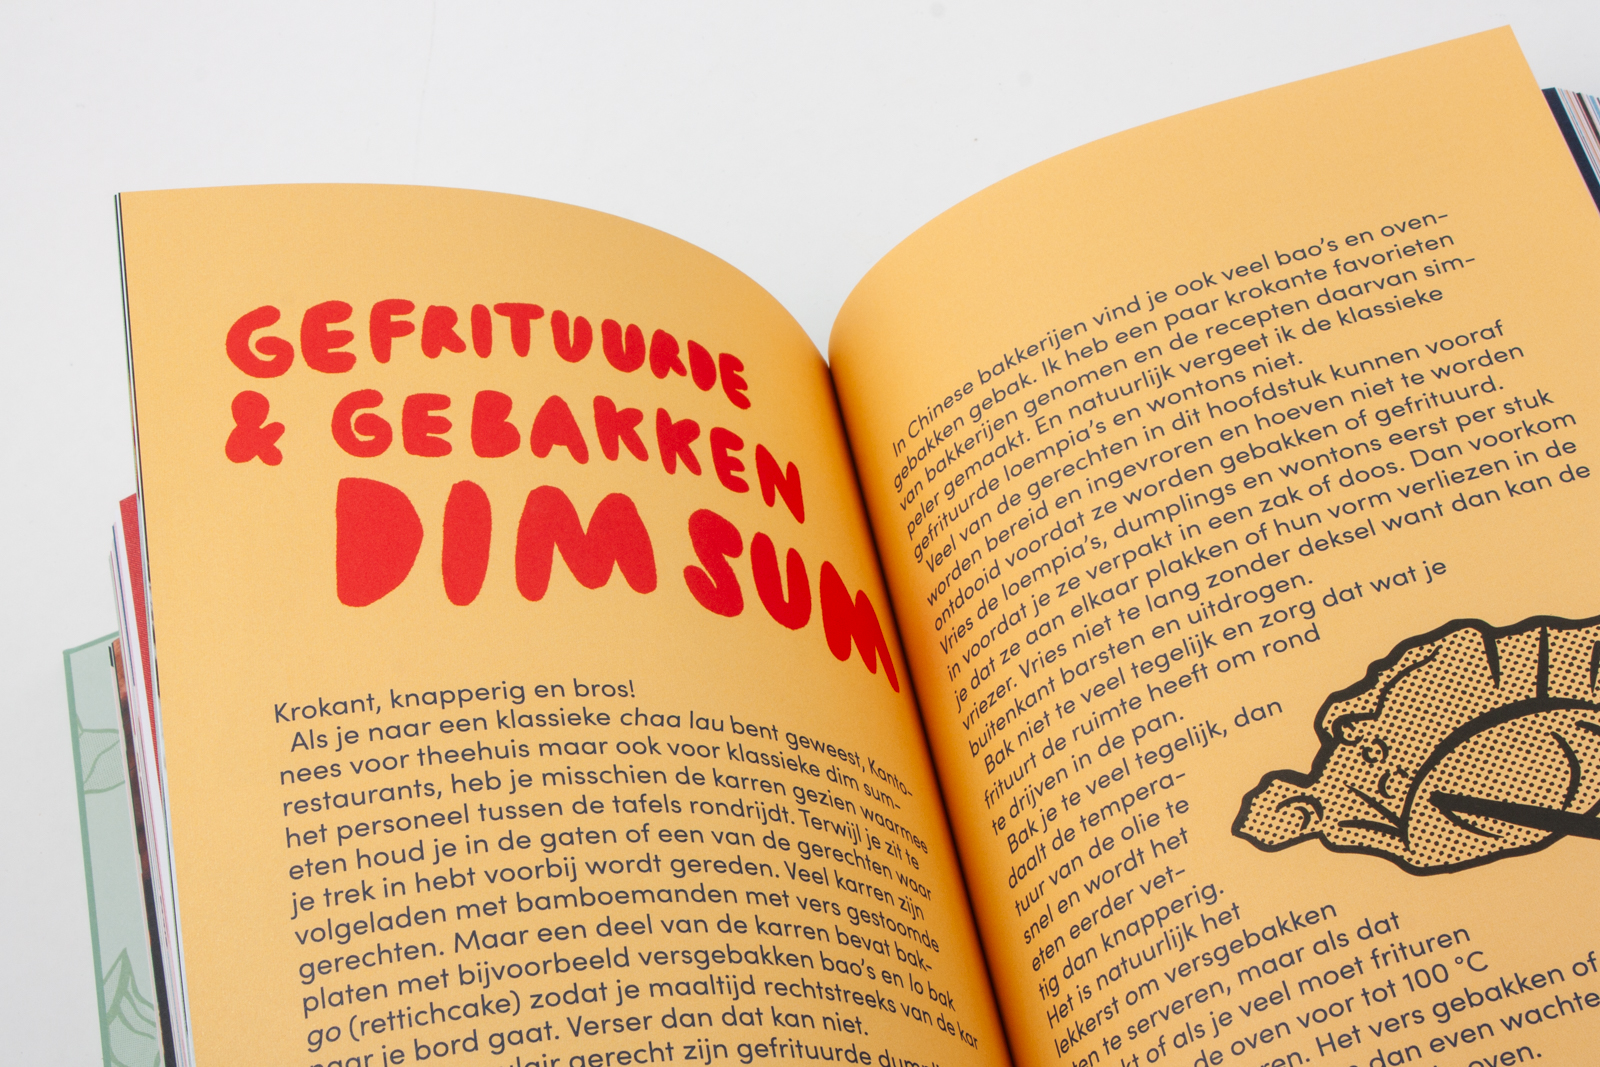 GEFRITUURDE
& GEBAKKEN
DIM SUM
Krokant, knapperig en bros!
Als je naar een klassieke chaa lau bent geweest, Kanto-
nees voor theehuis maar ook voor klassieke dim sum-
restaurants, heb je misschien de karren gezien waarmee
het personeel tussen de tafels rondrijdt. Terwijl je zit te
eten houd je in de gaten of een van de gerechten waar
je trek in hebt voorbij wordt gereden. Veel karren zijn
volgeladen met bamboemanden met vers gestoomde
gerechten. Maar een deel van de karren bevat bak-
platen met bijvoorbeeld versgebakken bao's en lo bak
go (rettichcake) zodat je maaltijd rechtstreeks van de kar
naar je bord gaat. Verser dan dat kan niet.
gerecht zijn gefrituurde
In Chinese bakkerijen vind je ook veel bao's en oven-
gebakken gebak. Ik heb een paar krokante favorieten
van bakkerijen genomen en de recepten daarvan sim-
peler gemaakt. En natuurlijk vergeet ik de klassieke
gefrituurde loempia's en wontons niet.
Veel van de gerechten in dit hoofdstuk kunnen vooraf
worden bereid en ingevroren en hoeven niet te worden
ontdooid voordat ze worden gebakken of gefrituurd.
Vries de loempia's, dumplings en wontons eerst per stuk
in voordat je ze verpakt in een zak of doos. Dan voorkom
je dat ze aan elkaar plakken of hun vorm verliezen in de
vriezer. Vries niet te lang zonder deksel want dan kan de
buitenkant barsten en uitdrogen.
Bak niet te veel tegelijk en zorg dat wat je
frituurt de ruimte heeft om rond
te drijven in de pan.
Bak je te veel tegelijk, dan
daalt de tempera-
tuur van de olie te
snel en wordt het
eten eerder vet-
tig dan knapperig.
Het is natuurlijk het
lekkerst om versgebakken
ten te serveren, maar als dat
kt of als je veel moet frituren
de oven voor tot 100 °C
ren. Het vers gebakken of
dan even wachte
oven.